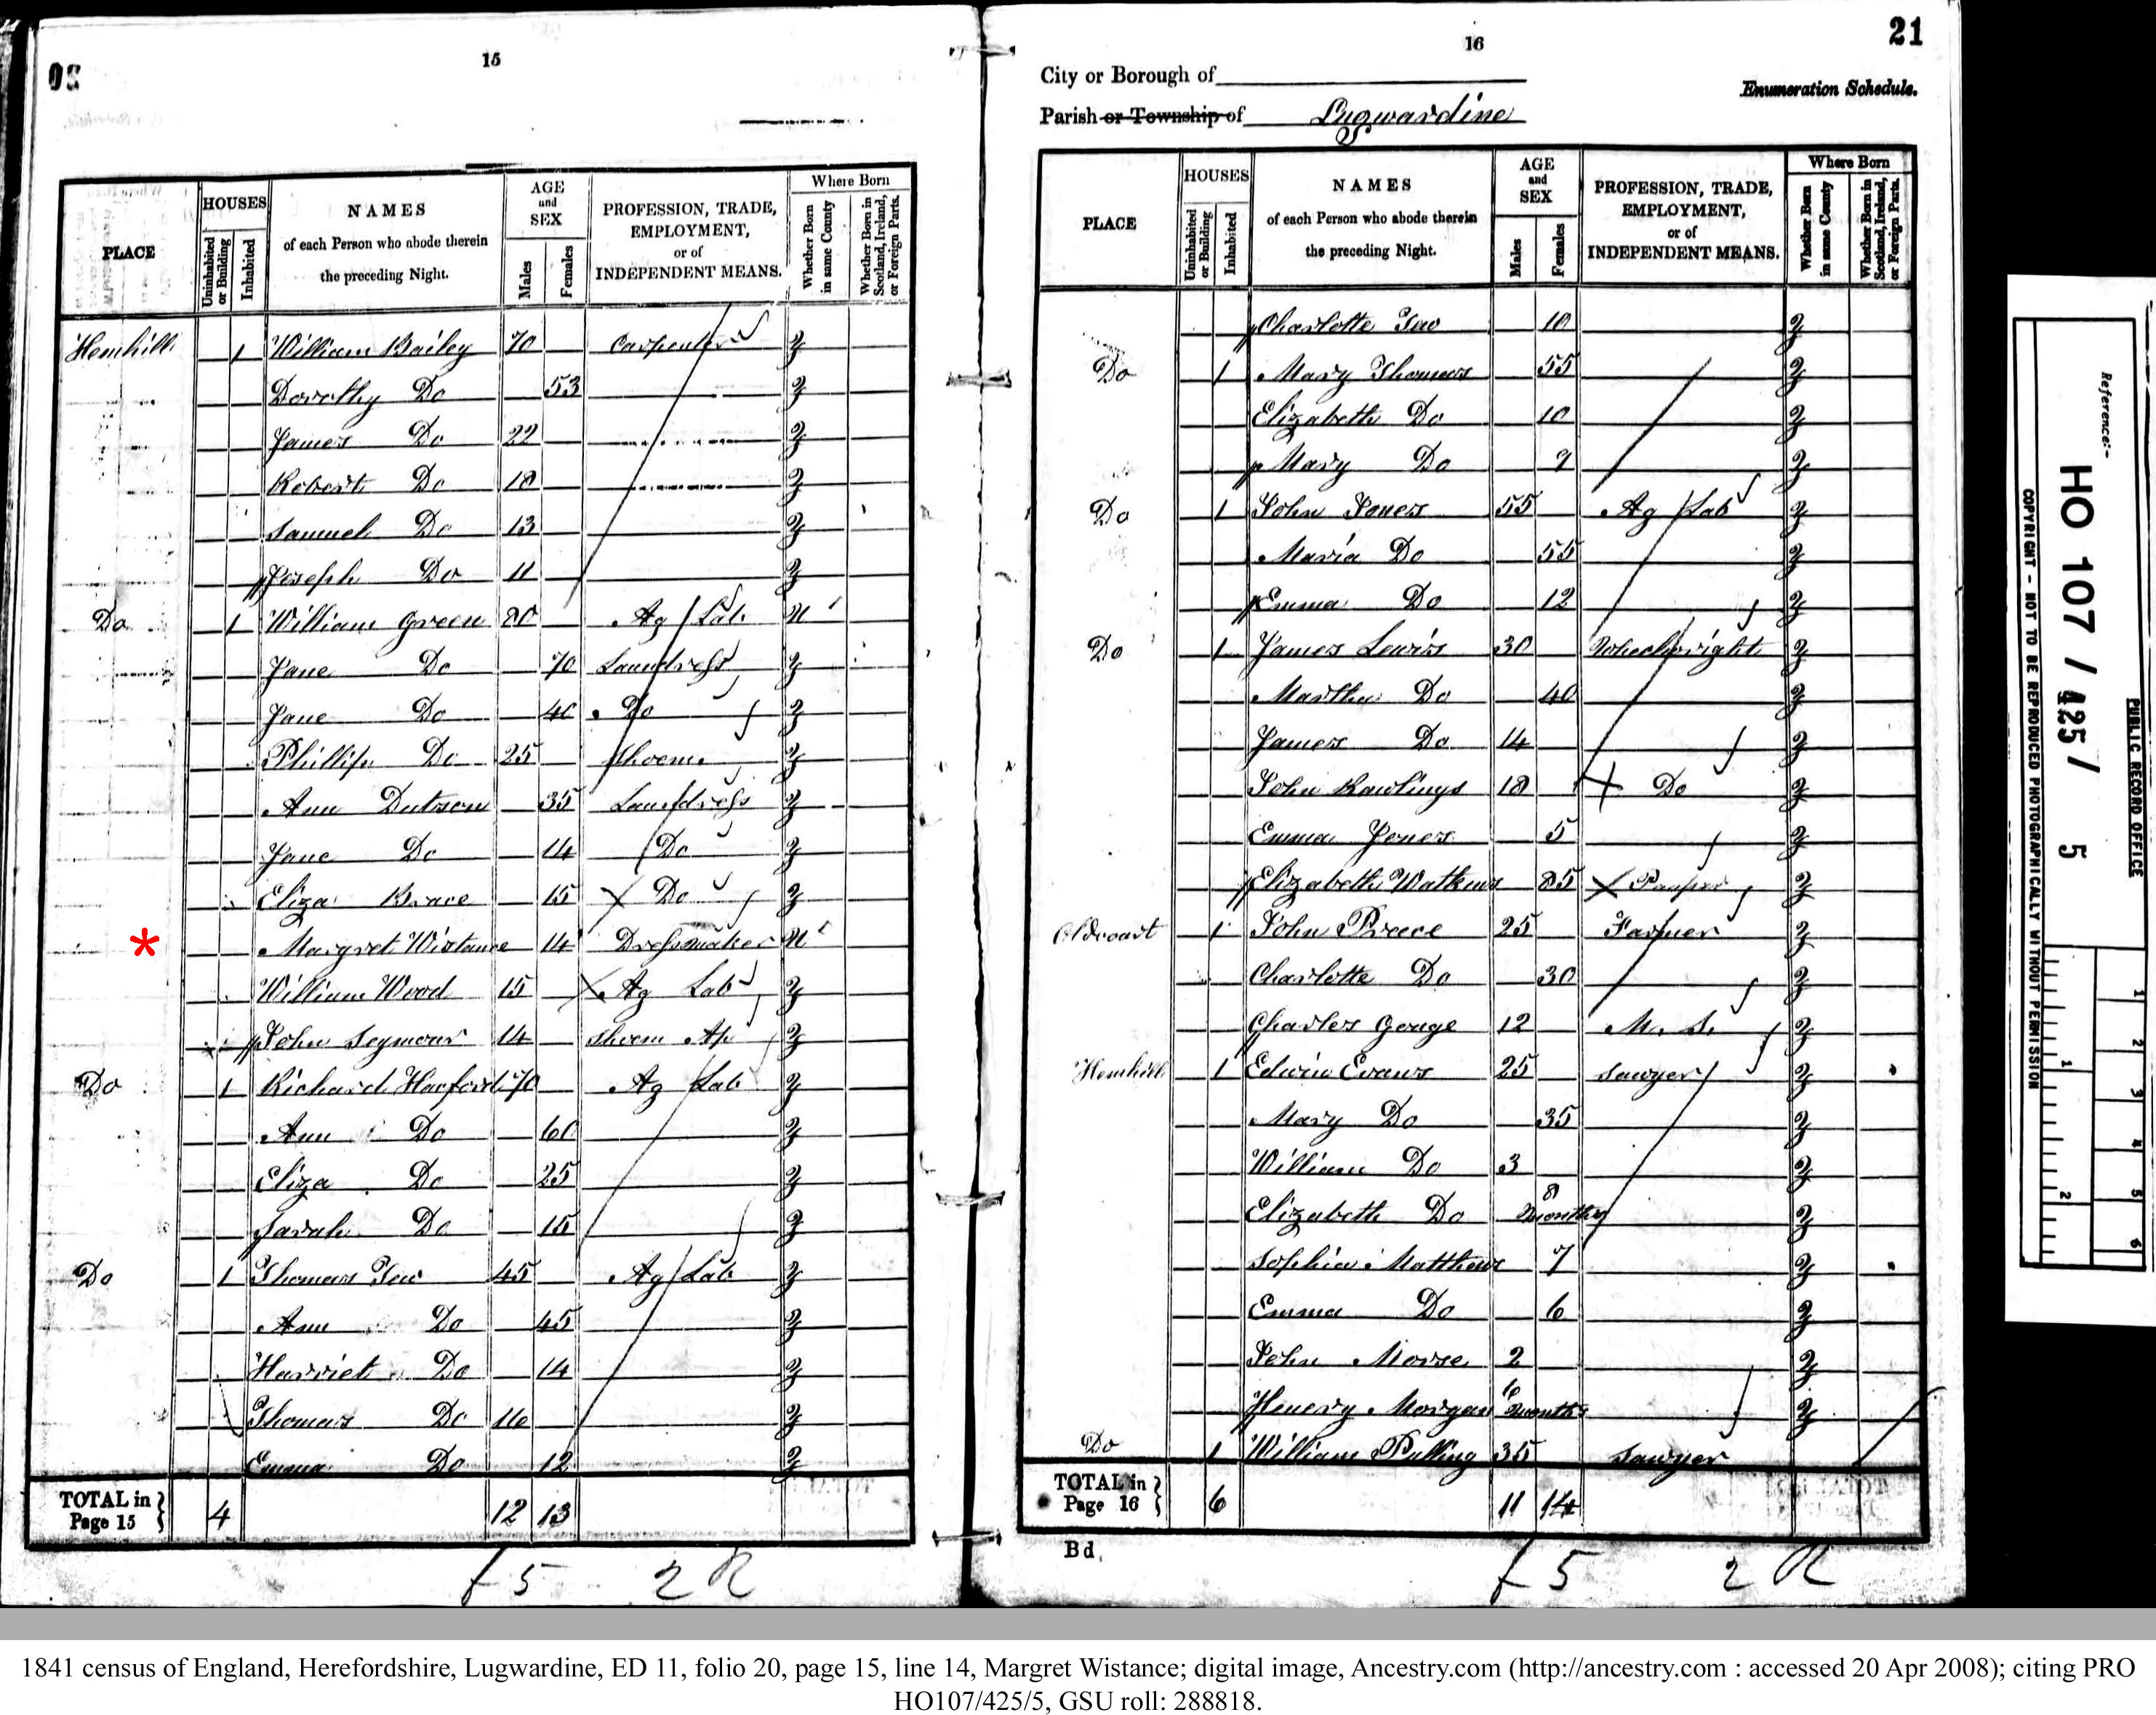 15
20
HOUSES
AGE and SEX
Where Born
PLACE
Uninhabited or Building
Inhabited
NAMES
of each Person who abode therein
the preceding Night.
Males
Females
PROFESSION, TRADE,
EMPLOYMENT,
or of
INDEPENDENT MEANS.
Whether Born in same County
Whether Born in Scotland, Ireland, or Foreign Parts.
Hemhill 1 William Bailey 70 Carpenter y
Dorothy Do 53 y
James Do 22 y
Robert Do 18 y
Samuel Do 13 y
Joseph Do 11 y
Do 1 William Green 80 Ag Lab n
Jane Do 70 Laundress y
Jane Do 40 Do y
Phillip Do 25 Shoem. y
Ann Dutson 35 Laundress y
Jane Do 14 Do y
Eliza Brace 15 Do y
* Margret Wistance 14 Dressmaker n
William Wood 15 Ag Lab y
John Seymour 14 Shoem Ap y
Do 1 Richard Harford 70 Ag Lab y
Ann Do 60 y
Eliza Do 25 y
Sarah Do 15 y
Do 1 Thomas Tew 45 Ag Lab y
Ann Do 45 y
Harriet Do 14 y
Thomas Do 16 y
Emma Do 12 y
TOTAL in Page 15 } 4 12 13
f 5 2 R
16
21
City or Borough of
Enumeration Schedule.
Parish or Township of Lugwardine
PLACE
HOUSES
Uninhabited or Building
Inhabited
NAMES
of each Person who abode therein
the preceding Night.
AGE and SEX
Males
Females
PROFESSION, TRADE,
EMPLOYMENT,
or of
INDEPENDENT MEANS.
Where Born
Whether Born in same County
Whether Born in Scotland, Ireland, or Foreign Parts.
Charlotte Tew 10 y
Do 1 Mary Thomas 55 y
Elizabeth Do 10 y
Mary Do 9 y
Do 1 John Jones 55 Ag Lab y
Maria Do 55 y
Emma Do 12 y
Do 1 James Lewis 30 Wheelwright y
Martha Do 40 y
James Do 14 y
John Rawlings 18 Do y
Emma Jones 5 y
Elizabeth Watkins 85 Pauper y
Oldcourt 1 John Preece 25 Farmer y
Charlotte Do 30 y
Charles Gouge 12 M. S. y
Hemhill 1 Edwin Evans 25 Sawyer y
Mary Do 35 y
William Do 3 y
Elizabeth Do 8 months y
Sophia Matthews 7 y
Emma Do 6 y
John Morse 2 y
Henery Morgan 6 months y
Do 1 William Pulling 35 Sawyer
TOTAL in Page 16 } 6 11 14
Bd.
f 5 2 R
Reference:-
HO 107 / 425 / 5
PUBLIC RECORD OFFICE
COPYRIGHT - NOT TO BE REPRODUCED PHOTOGRAPHICALLY WITHOUT PERMISSION
1 2
1 2 3 4 5 6
1841 census of England, Herefordshire, Lugwardine, ED 11, folio 20, page 15, line 14, Margret Wistance; digital image, Ancestry.com (http://ancestry.com : accessed 20 Apr 2008); citing PRO
HO107/425/5, GSU roll: 288818.